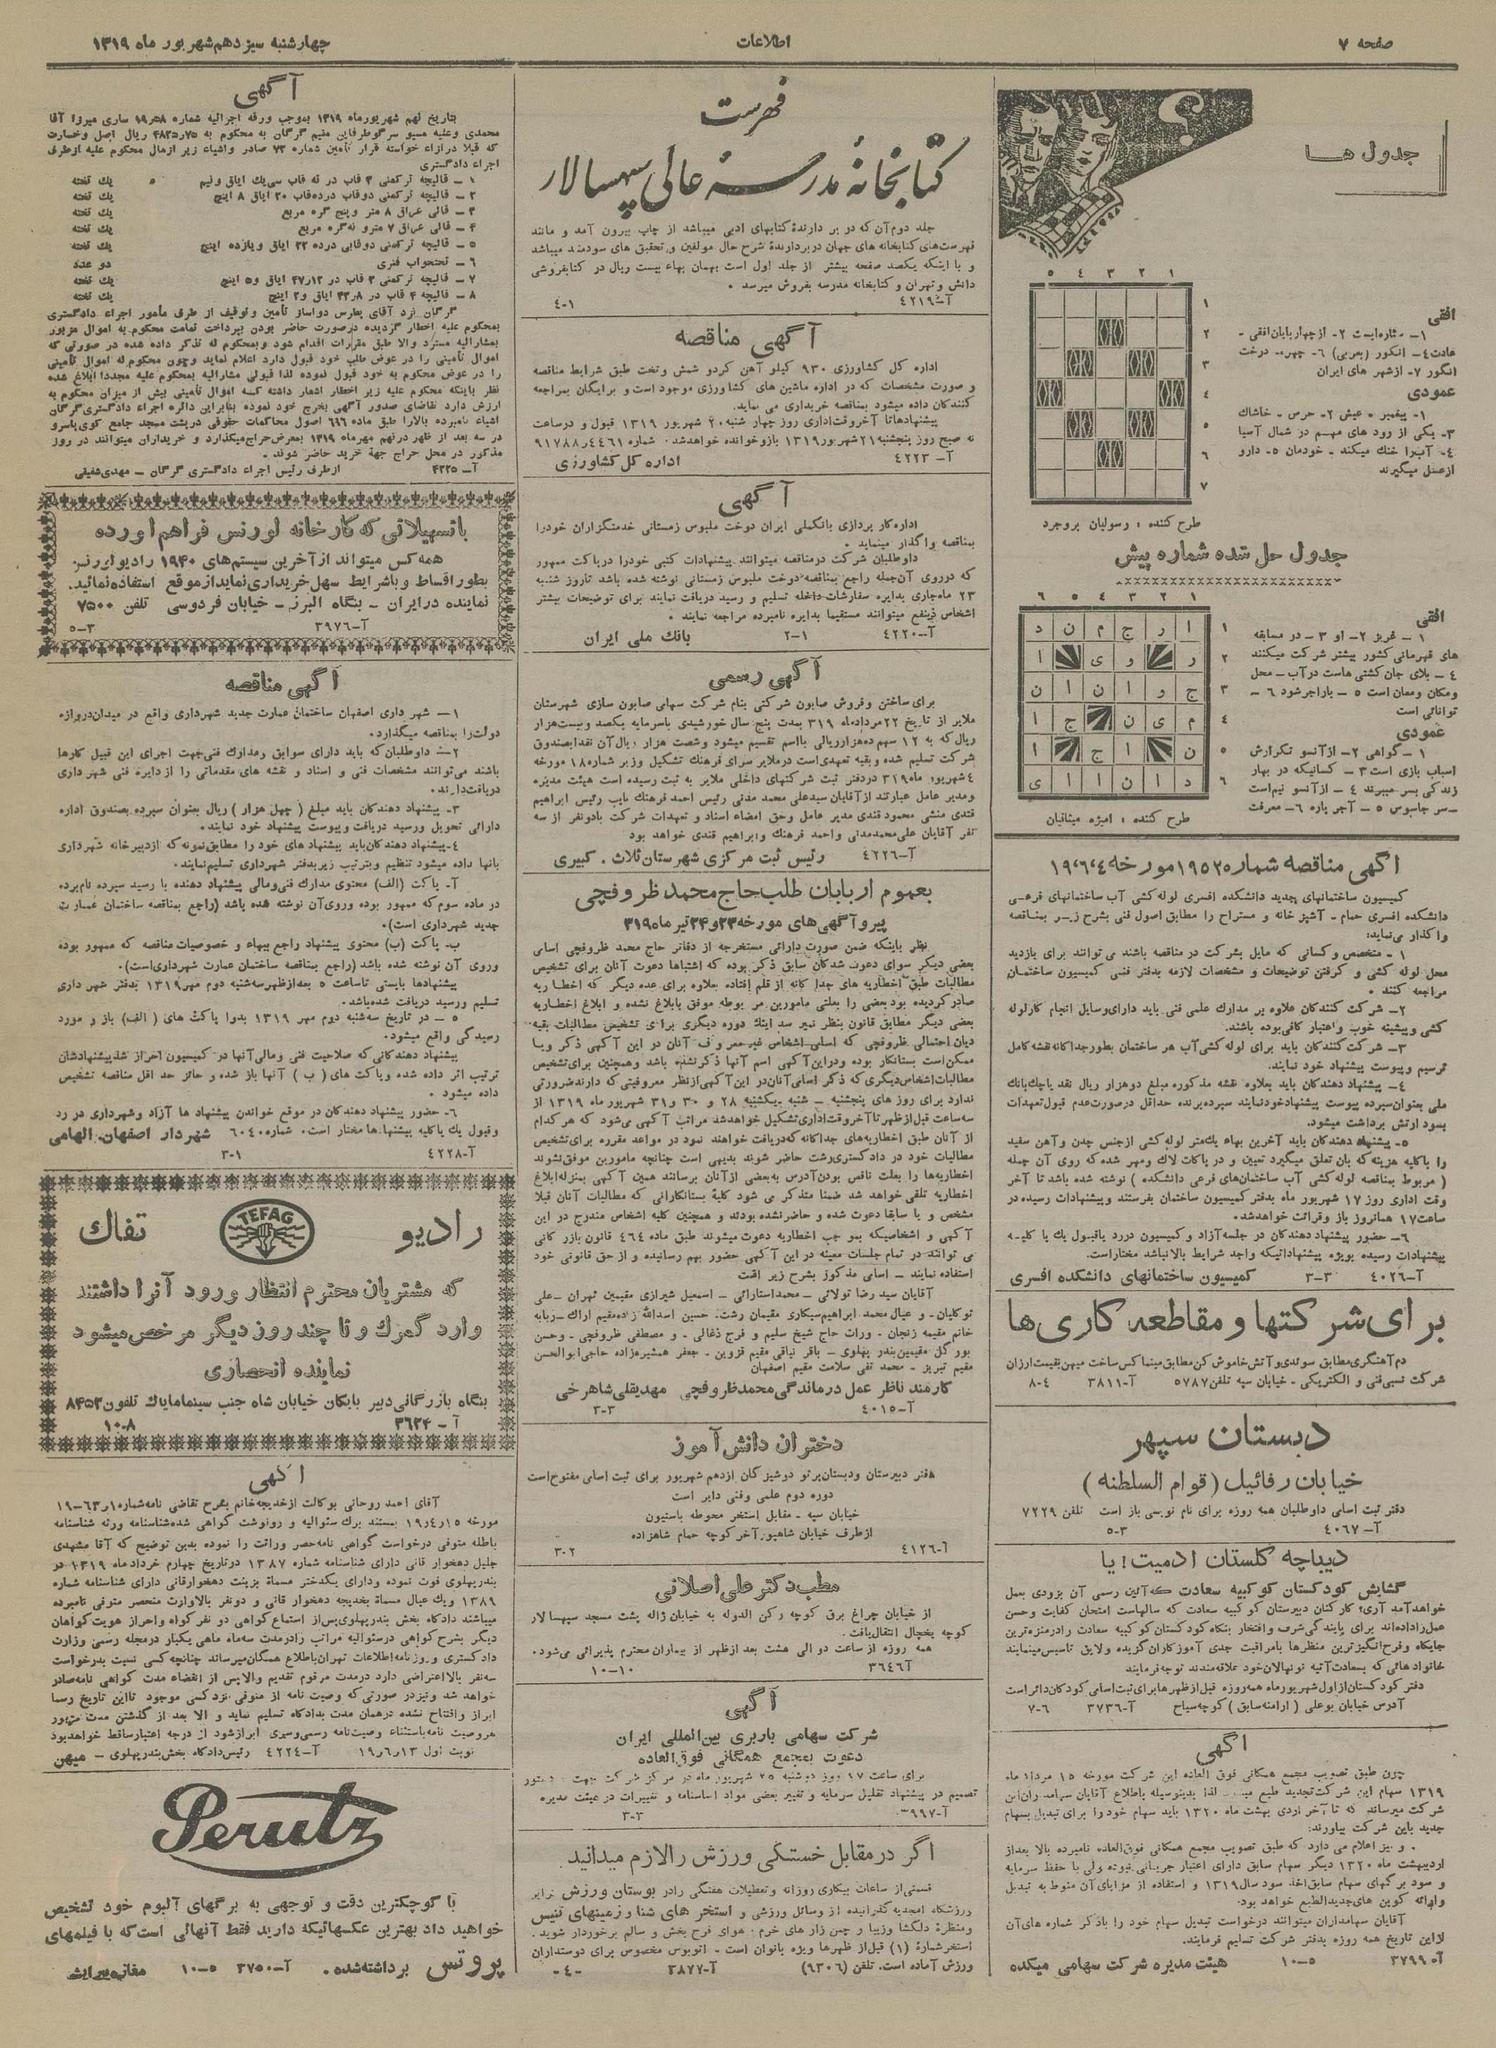 صفحه ۷
اطلاعات
چهارشنبه سیزدهم شهریور ماه ۱۳۱۹
جدول ها
۱ ۲ ۳ ۴ ۵
۱
۲
۳
۴
۵
۶
۷
افقی
۱- ستاره‌ایست ۲- از چهارپایان افقی -
عادت ۴- انگور (بعربی) ۶- چهره- درخت
انگور ۷- از شهر های ایران
عمودی
۱- پیغمبر - عیش ۲- حرس - خاشاك
۳- یکی از رود های مهم در شمال آسیا
۴- آب را خنك میکند - خودمان ۵- دارو
از عسل میگیرند
طرح کننده : رسولیان بروجرد
جدول حل شده شماره پیش
۱ ۲ ۳ ۴ ۵ ۶
ا ر ج م ن د
ر و ی ا
ج و ا ن ا ن
م ی ن ج ا
ن ا ج ا
د ا ن ا ا ی
افقی
۱- عزیز ۲- او ۳- در مسابقه
های قهرمانی کشور بیشتر شرکت میکنند
۴- بلای جان کشتی هاست در آب - محل
ومکان ومعان است ۵- پاراجر شود ۶-
توانائی است
عمودی
۱- گواهی ۲- از آنسو تکرارش
اسباب بازی است ۳- کسانیکه در بهار
زندگی بسر میبرند ۴- از آنسو نیم است
-سر جاسوس ۵- آجر پاره ۶- معرفت
طرح کننده : امیژه میثاقیان
آگهی مناقصه شماره ۱۹۵۲۵ مورخه ۱۹٫۶٫۴
کمیسیون ساختمانهای جدید دانشکده افسری لوله کشی آب ساختمانهای فرعی
دانشکده افسری حمام - آشپز خانه و مستراح را مطابق اصول فنی بشرح زیر بمناقصه
واگذار می‌نماید:
۱- متخصص و کسانی که مایل بشرکت در مناقصه باشند می توانند برای بازدید
محل لوله کشی و گرفتن توضیحات و مشخصات لازمه بدفتر فنی کمیسیون ساختمان
مراجعه کنند .
۲- شرکت کنندگان علاوه بر مدارك علمی فنی باید دارای وسایل انجام کار لوله
کشی و پیشینه خوب و اعتبار کافی بوده باشند.
۳- شرکت کنندگان باید برای لوله کشی آب هر ساختمان بطور جداگانه نقشه کامل
ترسیم و پیوست پیشنهاد خود نمایند.
۴- پیشنهاد دهندگان باید بعلاوه نقشه مذکوره مبلغ دوهزار ریال نقد یا چك بانك
ملی بعنوان سپرده پیوست پیشنهاد خود نمایند سپرده برنده حداقل در صورت عدم قبول تعهدات
بسود ارتش برداشت میشود.
۵- پیشنهاد دهندگان باید آخرین بهاء یك متر لوله کشی از جنس چدن و آهن سفید
را با کلیه هزینه که بان تعلق میگیرد تعیین و در پاکات لاك و مهر شده که روی آن جمله
( مربوط بمناقصه لوله کشی آب ساختمان های فرعی دانشکده ) نوشته شده باشد تا آخر
وقت اداری روز ۱۷ شهریور ماه بدفتر کمیسیون ساختمان بفرستند و پیشنهادات رسیده در
ساعت ۱۷ همانروز باز و قرائت خواهد شد.
۶- حضور پیشنهاد دهندگان در جلسه آزاد و کمیسیون در رد یا قبول یك یا کلیه
پیشنهادات رسیده بویژه پیشنهاداتیکه واجد شرایط بالا نباشد مختار است.
آ-۴۰۲۶ ۳-۳ کمیسیون ساختمانهای دانشکده افسری
برای شرکتها و مقاطعه کاری ها
دم آهنگری مطابق سوئدی و آتش خاموش کن مطابق مینماکس ساخت میهن بقیمت ارزان
شرکت نسبی فنی و الکتریکی - خیابان سپه تلفن ۵۷۸۷ آ-۳۸۱۱ ۴-۸
دبستان سپهر
خیابان رفائیل (قوام السلطنه)
دفتر ثبت اسامی داوطلبان همه روزه برای نام نویسی باز است تلفن ۷۲۲۹
آ- ۴۰۶۷ ۳-۵
دیباچه گلستان ادمیت! یا
گشایش کودکستان کوکبیه سعادت که آئین رسمی آن بزودی بعمل
خواهد آمد آری؛ کارکنان دبیرستان کوکبیه سعادت که سالهاست امتحان کفایت و حسن
عمل را داده‌اند برای پایندگی شرف و افتخار بنگاه کودکستان کوکبیه سعادت را در منزه ترین
جایگاه و فرح انگیزترین منظرها با مراقبت جدی آموزگاران گزیده و لایق تاسیس مینمایند
خانواد هائی که بسعادت آتیه نونهالان خود علاقه‌مندند توجه فرمایند
دفتر کودکستان از اول شهریور ماه همه روزه قبل از ظهرها برای ثبت اسامی کودکان دائر است
آدرس خیابان بوعلی ( ارامنه سابق ) کوچه سیاح آ-۳۷۳۶ ۶-۷
آگهی
چون طبق تصویب مجمع همگانی فوق العاده این شرکت مورخه ۱۵ مرداد ماه
۱۳۱۹ سهام این شرکت تجدید طبع لذا بدینوسیله باطلاع آقایان سهامداران این
شرکت میرساند که تا آخر اردی بهشت ماه ۱۳۲۰ باید سهام خود را برای تبدیل بسهام
جدید باین شرکت بیاورند:
و نیز اعلام می دارد که طبق تصویب مجمع همگانی فوق العاده نامبرده بالا بعد از
اردیبهشت ماه ۱۳۲۰ دیگر سهام سابق دارای اعتبار جریانی نبوده ولی با حفظ سرمایه
و سود برگهای سهام سابق اخذ سود سال ۱۳۱۹ و استفاده از مزایای آن منوط به تبدیل
و ارائه کوپن های جدید الطبع خواهد بود.
آقایان سهامداران میتوانند درخواست تبدیل سهام خود را با ذکر شماره های آن
از این تاریخ همه روزه بدفتر شرکت تسلیم فرمایند.
آ-۳۷۹۹ ۵-۱۰ هیئت مدیره شرکت سهامی میکده
فهرست
کتابخانهٔ مدرسهٔ عالی سپهسالار
جلد دوم آن که در بر دارندهٔ کتابهای ادبی میباشد از چاپ بیرون آمد و مانند
فهرست‌های کتابخانه های جهان در بردارندهٔ شرح حال مولفین و تحقیق های سودمند میباشد
و با اینکه یکصد صفحه بیشتر از جلد اول است بهمان بهاء بیست ریال در کتابفروشی
دانش و تهران و کتابخانه مدرسه بفروش میرسد .
آ-۴۲۱۹ ۱-۴
آگهی مناقصه
اداره کل کشاورزی ۹۳۰ کیلو آهن گردو شمش و تخت طبق شرایط مناقصه
و صورت مشخصات که در اداره ماشین های کشاورزی موجود است و برایگان بمراجعه
کنندگان داده میشود بمناقصه خریداری می نماید.
پیشنهادها تا آخر وقت اداری روز چهار شنبه ۲۰ شهریور ۱۳۱۹ قبول و در ساعت
نه صبح روز پنجشنبه ۲۱ شهریور ۱۳۱۹ باز و خوانده خواهد شد. شماره ۹۱۷۸۸٫۴۴۶۱
آ- ۴۲۲۳ اداره کل کشاورزی
آگهی
اداره کار پردازی بانك ملی ایران دوخت ملبوس زمستانی خدمتگزاران خود را
بمناقصه واگذار مینماید .
داوطلبان شرکت در مناقصه میتوانند پیشنهادات کتبی خود را در پاکت ممهور
که در روی آن جمله راجع بمناقصه دوخت ملبوس زمستانی نوشته شده باشد تا روز شنبه
۲۳ ماه جاری بدایره سفارشات داخله تسلیم و رسید دریافت نمایند برای توضیحات بیشتر
اشخاص ذینفع میتوانند مستقیما بدایره نامبرده مراجعه نمایند .
آ-۴۲۲۰ ۱-۲ بانك ملی ایران
آگهی رسمی
برای ساختن و فروش صابون شرکتی بنام شرکت سهامی صابون سازی شهرستان
ملایر از تاریخ ۲۲ مرداد ماه ۳۱۹ بمدت پنج سال خورشیدی با سرمایه یکصد و بیست هزار
ریال که به ۱۲ سهم ده هزار ریالی با اسم تقسیم میشود و شصت هزار ریال آن نقدا بصندوق
شرکت تسلیم شده و بقیه تعهدی است در ملایر سرای فرهنك تشکیل و زیر شماره ۱۸ مورخه
۴ شهریور ماه ۳۱۹ در دفتر ثبت شرکتهای داخلی ملایر به ثبت رسیده است هیئت مدیره
و مدیر عامل عبارتند از آقایان سید علی محمد مدنی رئیس احمد فرهنك نایب رئیس ابراهیم
قندی منشی محمود قندی مدیر عامل و حق امضاء اسناد و تعهدات شرکت با دو نفر از سه
نفر آقایان علی محمد مدنی و احمد فرهنك و ابراهیم قندی خواهد بود
آ-۴۲۲۶ رئیس ثبت مرکزی شهرستان ثلاث . کبیری
بعموم اربابان طلب حاج محمد ظروفچی
پیرو آگهی های مورخه ۲۳ و ۲۴ تیر ماه ۳۱۹
نظر باینکه ضمن صورت دارائی مستخرجه از دفاتر حاج محمد ظروفچی اسامی
بعضی دیگر سوای دعوت شدگان سابق ذکر بوده که اشتباها دعوت آنان برای تشخیص
مطالبات طبق اخطاریه های جداگانه از قلم افتاده بعلاوه برای عده دیگر که اخطاریه
صادر گردیده بود بعضی را بعلتی مامورین مربوطه موفق بابلاغ نشده و ابلاغ اخطاریه
بعضی دیگر مطابق قانون بنظر نمیرسد اینك دوره دیگری برای تشخیص مطالبات بقیه
دیان احتمالی ظروفچی که اسامی اشخاص غیر معروف آنان در این آگهی ذکر و یا
ممکن است بستانکار بوده و در این آگهی اسم آنها ذکر نشده باشد و همچنین برای تشخیص
مطالبات اشخاص دیگری که ذکر اسامی آنان در این آگهی از نظر معروفیتی که دارند ضرورتی
ندارد برای روز های پنجشنبه - شنبه - یکشنبه ۲۸ و ۳۰ و ۳۱ شهریور ماه ۱۳۱۹ از
سه ساعت قبل از ظهر تا آخر وقت اداری تشکیل خواهد شد مراتب آگهی می شود که هر کدام
از آنان طبق اخطاریه های جداگانه که دریافت خواهند نمود در مواعد مقرره برای تشخیص
مطالبات خود در دادگستری رشت حاضر شوند بدیهی است چنانچه مامورین موفق نشوند
اخطاریه ها را بعلت ناقص بودن آدرس به بعضی از آنان برسانند همین آگهی بمنزله ابلاغ
اخطاریه تلقی خواهد شد ضمنا متذکر می شود کلیهٔ بستانکارانی که مطالبات آنان قبلا
مشخص و یا سابقا دعوت شده و حاضر نشده بودند و همچنین کلیه اشخاص مندرج در این
آگهی و اشخاصیکه بموجب اخطاریه دعوت میشوند طبق ماده ۴۶۴ قانون بازرگانی
می توانند در تمام جلسات معینه در این آگهی حضور بهم رسانیده و از حق قانونی خود
استفاده نمایند - اسامی مذکور بشرح زیر است
آقایان سید رضا تولائی - محمد استارائی - اسمعیل شیرازی مقیمین تهران - علی
توکلیان - و عیال محمد ابراهیم سیگاری مقیمان رشت. حسین اسداله زاده مقیم اراك - ربابه
خانم مقیمه زنجان - وراث حاج شیخ سلیم و فرج ذغالی - و مصطفی ظروفچی - و حسن
پور گل مقیمین بندر پهلوی - باقر نیاقی مقیم قزوین - جعفر همشیره زاده حاجی ابوالحسن
مقیم تبریز - محمد تقی سلامت مقیم اصفهان
کارمند ناظر عمل درماندگی محمد ظروفچی مهدیقلی شاهرخی
آ-۴۰۱۵ ۳-۳
دختران دانش آموز
دفتر دبیرستان و دبستان پرتو دوشیزگان از دهم شهریور برای ثبت اسامی مفتوح است
دوره دوم علمی و فنی دایر است
خیابان سپه - مقابل استخر محوطه باستیون
از طرف خیابان شاهپور آخر کوچه حمام شاهزاده
آ-۴۱۲۶ ۲-۳
مطب دکتر علی اصلانی
از خیابان چراغ برق کوچه رکن الدوله به خیابان ژاله پشت مسجد سپهسالار
کوچه یخچال انتقال یافت.
همه روزه از ساعت دو الی هشت بعد از ظهر از بیماران محترم پذیرائی می شود.
آ-۳۶۴۶ ۱۰-۱۰
آگهی
شرکت سهامی باربری بین‌المللی ایران
دعوت بمجمع همگانی فوق العاده
برای ساعت ۱۷ روز دوشنبه ۲۵ شهریور ماه در مرکز شرکت جهت
تصمیم در پیشنهاد تقلیل سرمایه و تغییر بعضی مواد اساسنامه و تغییرات در هیئت مدیره
آ-۳۹۹۷ ۳-۳
اگر در مقابل خستگی ورزش را لازم میدانید
قسمتی از ساعات بیکاری روزانه و تعطیلات هفتگی را در بوستان ورزش برابر
ورزشگاه امجدیه گذرانیده از وسائل ورزشی و استخر های شنا و زمینهای تنیس
و منظرهٔ دلگشا و زیبا و چمن زار های خرم . هوای فرح بخش و سالم برخوردار شوید.
استخر شمارهٔ (۱) قبل از ظهرها ویژه بانوان است - اتوبوس مخصوص برای دوستداران
ورزش آماده است. تلفن (۹۳۰۶) آ-۳۸۷۷ -۴-
آگهی
بتاریخ نهم شهریور ماه ۱۳۱۹ بموجب ورقه اجرائیه شماره ۱۹٫۵۸ ساری میرزا آقا
محمدی و علیه مسیو سرگو طرفاین مقیم گرگان به محکوم به ۴۸۲۵٫۷۵ ریال اصل و خسارت
که قبلا در ازاء خواسته قرار تأمین شماره ۷۳ صادر و اشیاء زیر از مال محکوم علیه از طرف
اجراء دادگستری
۱- قالیچه ترکمنی ۳ قاب در نه قاب سی یك ایاق و نیم یك تخته
۲- قالیچه ترکمنی دو قاب در ده قاب ۲۰ ایاق ۸ اینچ یك تخته
۳- قالی عراق ۸ متر و پنج گره مربع یك تخته
۴- قالی عراق ۷ متر و نه گره مربع یك تخته
۵- قالیچه ترکمنی دو قابی در ده ۲۲ ایاق و یازده اینچ یك تخته
۶- تختخواب فنری دو عدد
۷- قالیچه ترکمنی ۳ قاب در ۱۲٫۴۷ ایاق و ۵ اینچ یك تخته
۸- قالیچه ۴ قاب در ۸٫۴۳ ایاق و ۲ اینچ یك تخته
گرگان نزد آقای پطرس دواساز تأمین و توقیف از طرف مأمور اجراء دادگستری
بمحکوم علیه اخطار گردیده در صورت حاضر بودن بپرداخت تمامت محکوم به اموال مزبور
بمشارالیه مسترد والا طبق مقررات اقدام شود و بمحکوم له تذکر داده شده در صورتی که
اموال تأمینی را در عوض طلب خود قبول دارد اعلام نماید و چون محکوم له اموال تأمینی
را در عوض محکوم به خود قبول نموده لذا قبولی مشارالیه بمحکوم علیه مجددا ابلاغ شده
نظر باینکه محکوم علیه زیر اخطار اشعار داشته که اموال تأمینی بیش از میزان محکوم به
ارزش دارد تقاضای صدور آگهی بخرج خود نموده بنابراین دائره اجراء دادگستری گرگان
اشیاء نامبرده بالا طبق ماده ۶۹۶ اصول محاکمات حقوقی در پشت مسجد جامع کوی پاسرو
در سه بعد از ظهر در نهم مهر ماه ۱۳۱۹ بمعرض حراج میگذارد و خریداران میتوانند در روز
مذکور در محل حراج جههٔ خرید حاضر شوند .
آ-۴۲۲۵ از طرف رئیس اجراء دادگستری گرگان - مهدی شفیقی
با تسهیلاتی که کارخانه لورنس فراهم اورده
همه کس میتواند از آخرین سیستم های ۱۹۴۰ رادیو لورنس
بطور اقساط و با شرایط سهل خریداری نماید از موقع استفاده نمائید.
نماینده در ایران - بنگاه البرز - خیابان فردوسی تلفن ۷۵۰۰
آ-۳۹۷۶ ۳-۵
آگهی مناقصه
۱- شهرداری اصفهان ساختمان عمارت جدید شهرداری واقع در میدان دروازه
دولت را بمناقصه میگذارد.
۲- داوطلبان که باید دارای سوابق و مدارك فنی جهت اجرای این قبیل کارها
باشند می توانند مشخصات فنی و اسناد و نقشه های مقدماتی را از دایره فنی شهرداری
دریافت دارند.
۳- پیشنهاد دهندگان باید مبلغ ( چهل هزار ) ریال بعنوان سپرده بصندوق اداره
دارائی تحویل و رسید دریافت و پیوست پیشنهاد خود نمایند .
۴- پیشنهاد دهندگان باید پیشنهاد های خود را مطابق نمونه که از دبیرخانه شهرداری
بانها داده میشود تنظیم و بترتیب زیر بدفتر شهرداری تسلیم نمایند.
آ- پاکت (الف) محتوی مدارك فنی و مالی پیشنهاد دهنده با رسید سپرده نام برده
در ماده سوم که ممهور بوده و روی آن نوشته شده باشد (راجع بمناقصه ساختمان عمارت
جدید شهرداری است).
ب- پاکت (ب) محتوی پیشنهاد راجع ببهاء و خصوصیات مناقصه که ممهور بوده
و روی آن نوشته شده باشد (راجع بمناقصه ساختمان عمارت شهرداری است).
پیشنهادها بایستی تا ساعت ۵ بعد از ظهر سه شنبه دوم مهر ۱۳۱۹ بدفتر شهرداری
تسلیم و رسید دریافت شده باشد.
۵- در تاریخ سه شنبه دوم مهر ۱۳۱۹ بدوا پاکت های ( الف) باز و مورد
رسیدگی واقع میشود.
پیشنهاد دهندگانی که صلاحیت فنی و مالی آنها در کمیسیون احراز شد پیشنهادشان
ترتیب اثر داده شده و پاکت های ( ب ) آنها باز شده و حائز حداقل مناقصه تشخیص
داده میشود .
۶- حضور پیشنهاد دهندگان در موقع خواندن پیشنهاد ها آزاد و شهرداری در رد
و قبول یك یا کلیه پیشنهادها مختار است. شماره ۶۰۴۰ شهردار اصفهان. الهامی
آ-۴۲۲۸ ۱-۳
رادیو TEFAG تفاك
که مشتریان محترم انتظار ورود آنرا داشتند
وارد گمرك و تا چند روز دیگر مرخص میشود
نماینده انحصاری
بنگاه بازرگانی دبیر بابکان خیابان شاه جنب سینما مایاك تلفون ۸۴۵۳
آ- ۳۶۲۴ ۸-۱۰
آگهی
آقای احمد روحانی بوکالت از خدیجه خانم بشرح تقاضی نامه شماره ۱۰٫۶۳-۱۹
مورخه ۱۵٫۴٫۱۹ بمستند برك سئوالیه و رونوشت گواهی شده شناسنامه ورثه شناسنامه
باطله متوفی درخواست گواهی نامه حصر وراثت را نموده بدین توضیح که آقا مشهدی
جلیل دهخوار قانی دارای شناسنامه شماره ۱۳۸۷ در تاریخ چهارم خرداد ماه ۱۳۱۹ در
بندر پهلوی فوت نموده و دارای یکدختر مسماة بزینت دهخوارقانی دارای شناسنامه شماره
۱۳۸۹ و یك عیال مسماة بخدیجه دهخوار قانی و دو نفر بالا وارث منحصر متوفی نامبرده
میباشند دادگاه بخش بندر پهلوی پس از استماع گواهی دو نفر گواه و احراز هویت گواهان
دیگر بشرح گواهی در سئوالیه مراتب را در مدت سه ماه ماهی یکبار در مجله رسمی وزارت
دادگستری و روزنامه اطلاعات تهران باطلاع همگان میرساند چنانچه کسی نسبت بدرخواست
سه نفر بالا اعتراضی دارد در مدت مرقوم تقدیم والا پس از انقضاء مدت گواهی نامه صادر
خواهد شد و نیز در صورتی که وصیت نامه از متوفی نزد کسی موجود تا این تاریخ رسما
ابراز و افتتاح نشده در همان مدت بدادگاه تسلیم نماید و الا بعد از گذشتن مدت مزبور
هر وصیت نامه باستثناء وصیت‌نامه رسمی و سری ابراز شود از درجه اعتبار ساقط خواهد بود
نوبت اول ۱۳٫۶٫۱۹ آ-۴۲۲۴ رئیس دادگاه بخش بندر پهلوی - میهن
Perutz
با کوچکترین دقت و توجهی به برگهای آلبوم خود تشخیص
خواهید داد بهترین عکسهائیکه دارید فقط آنهائی است که با فیلمهای
پروتس برداشته شده . آ-۳۷۵۰ ۵-۱۰